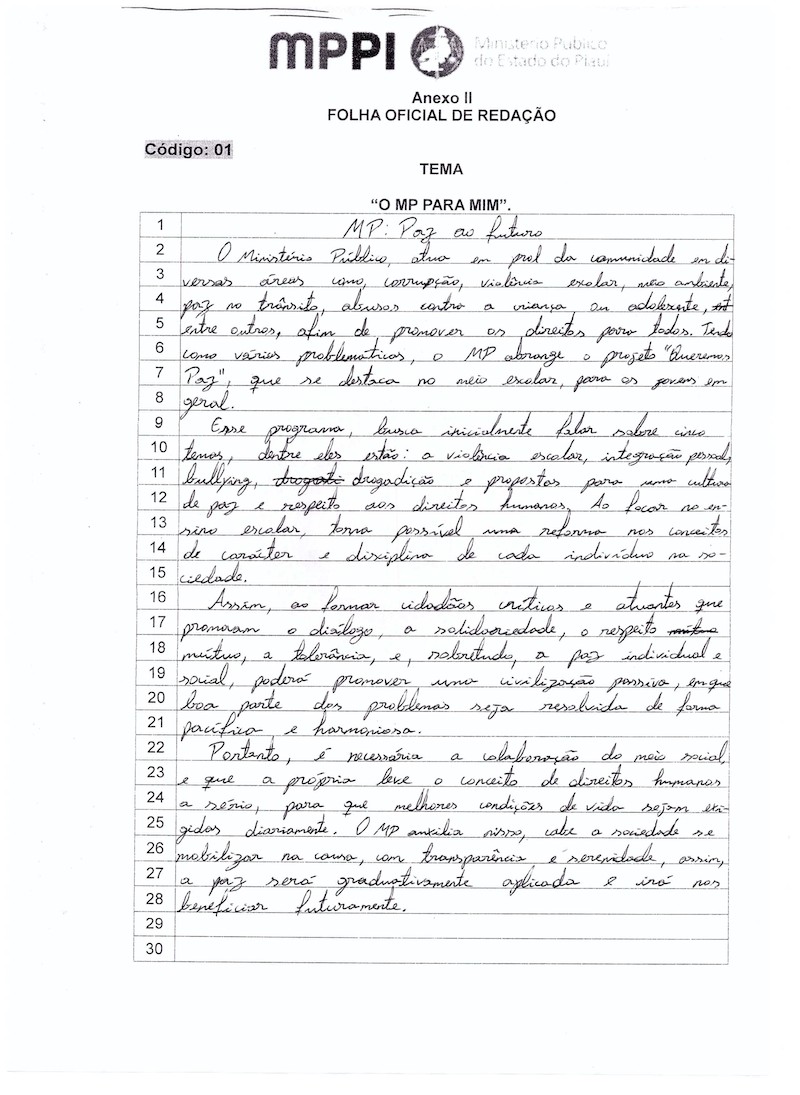 MPPI Ministério Público
do Estado do Piauí
Anexo II
FOLHA OFICIAL DE REDAÇÃO
Código: 01
TEMA
“O MP PARA MIM”.
1 MP: Paz ao futuro
2 O Ministério Público, atua em prol da comunidade em di-
3 versas áreas como, corrupção, violência escolar, meio ambiente,
4 paz no trânsito, abusos contra a criança ou adolescente,
5 entre outros, afim de promover os direitos para todos. Tendo
6 como várias problemáticas, o MP abrange o projeto "Queremos
7 Paz", que se destaca no meio escolar, para os jovens em
8 geral.
9 Esse programa, busca inicialmente falar sobre cinco
10 temas, dentre eles estão: a violência escolar, integração pessoal,
11 bullying, drogadição e propostas para uma cultura
12 de paz e respeito aos direitos humanos. Ao focar no en-
13 sino escolar, torna possível uma reforma nos conceitos
14 de carácter e disciplina de cada indivíduo na so-
15 ciedade.
16 Assim, ao formar cidadãos críticos e atuantes que
17 promovam o diálogo, a solidariedade, o respeito
18 mútuo, a tolerância, e, sobretudo, a paz individual e
19 social, poderá promover uma civilização passiva, em que
20 boa parte dos problemas seja resolvida de forma
21 pacífica e harmoniosa.
22 Portanto, é necessária a colaboração do meio social,
23 e que a própria leve o conceito de direitos humanos
24 a sério, para que melhores condições de vida sejam exi-
25 gidas diariamente. O MP auxilia nisso, cabe a sociedade se
26 mobilizar na causa, com transparência e serenidade, assim,
27 a paz será graduativamente aplicada e irá nos
28 beneficiar futuramente.
29
30